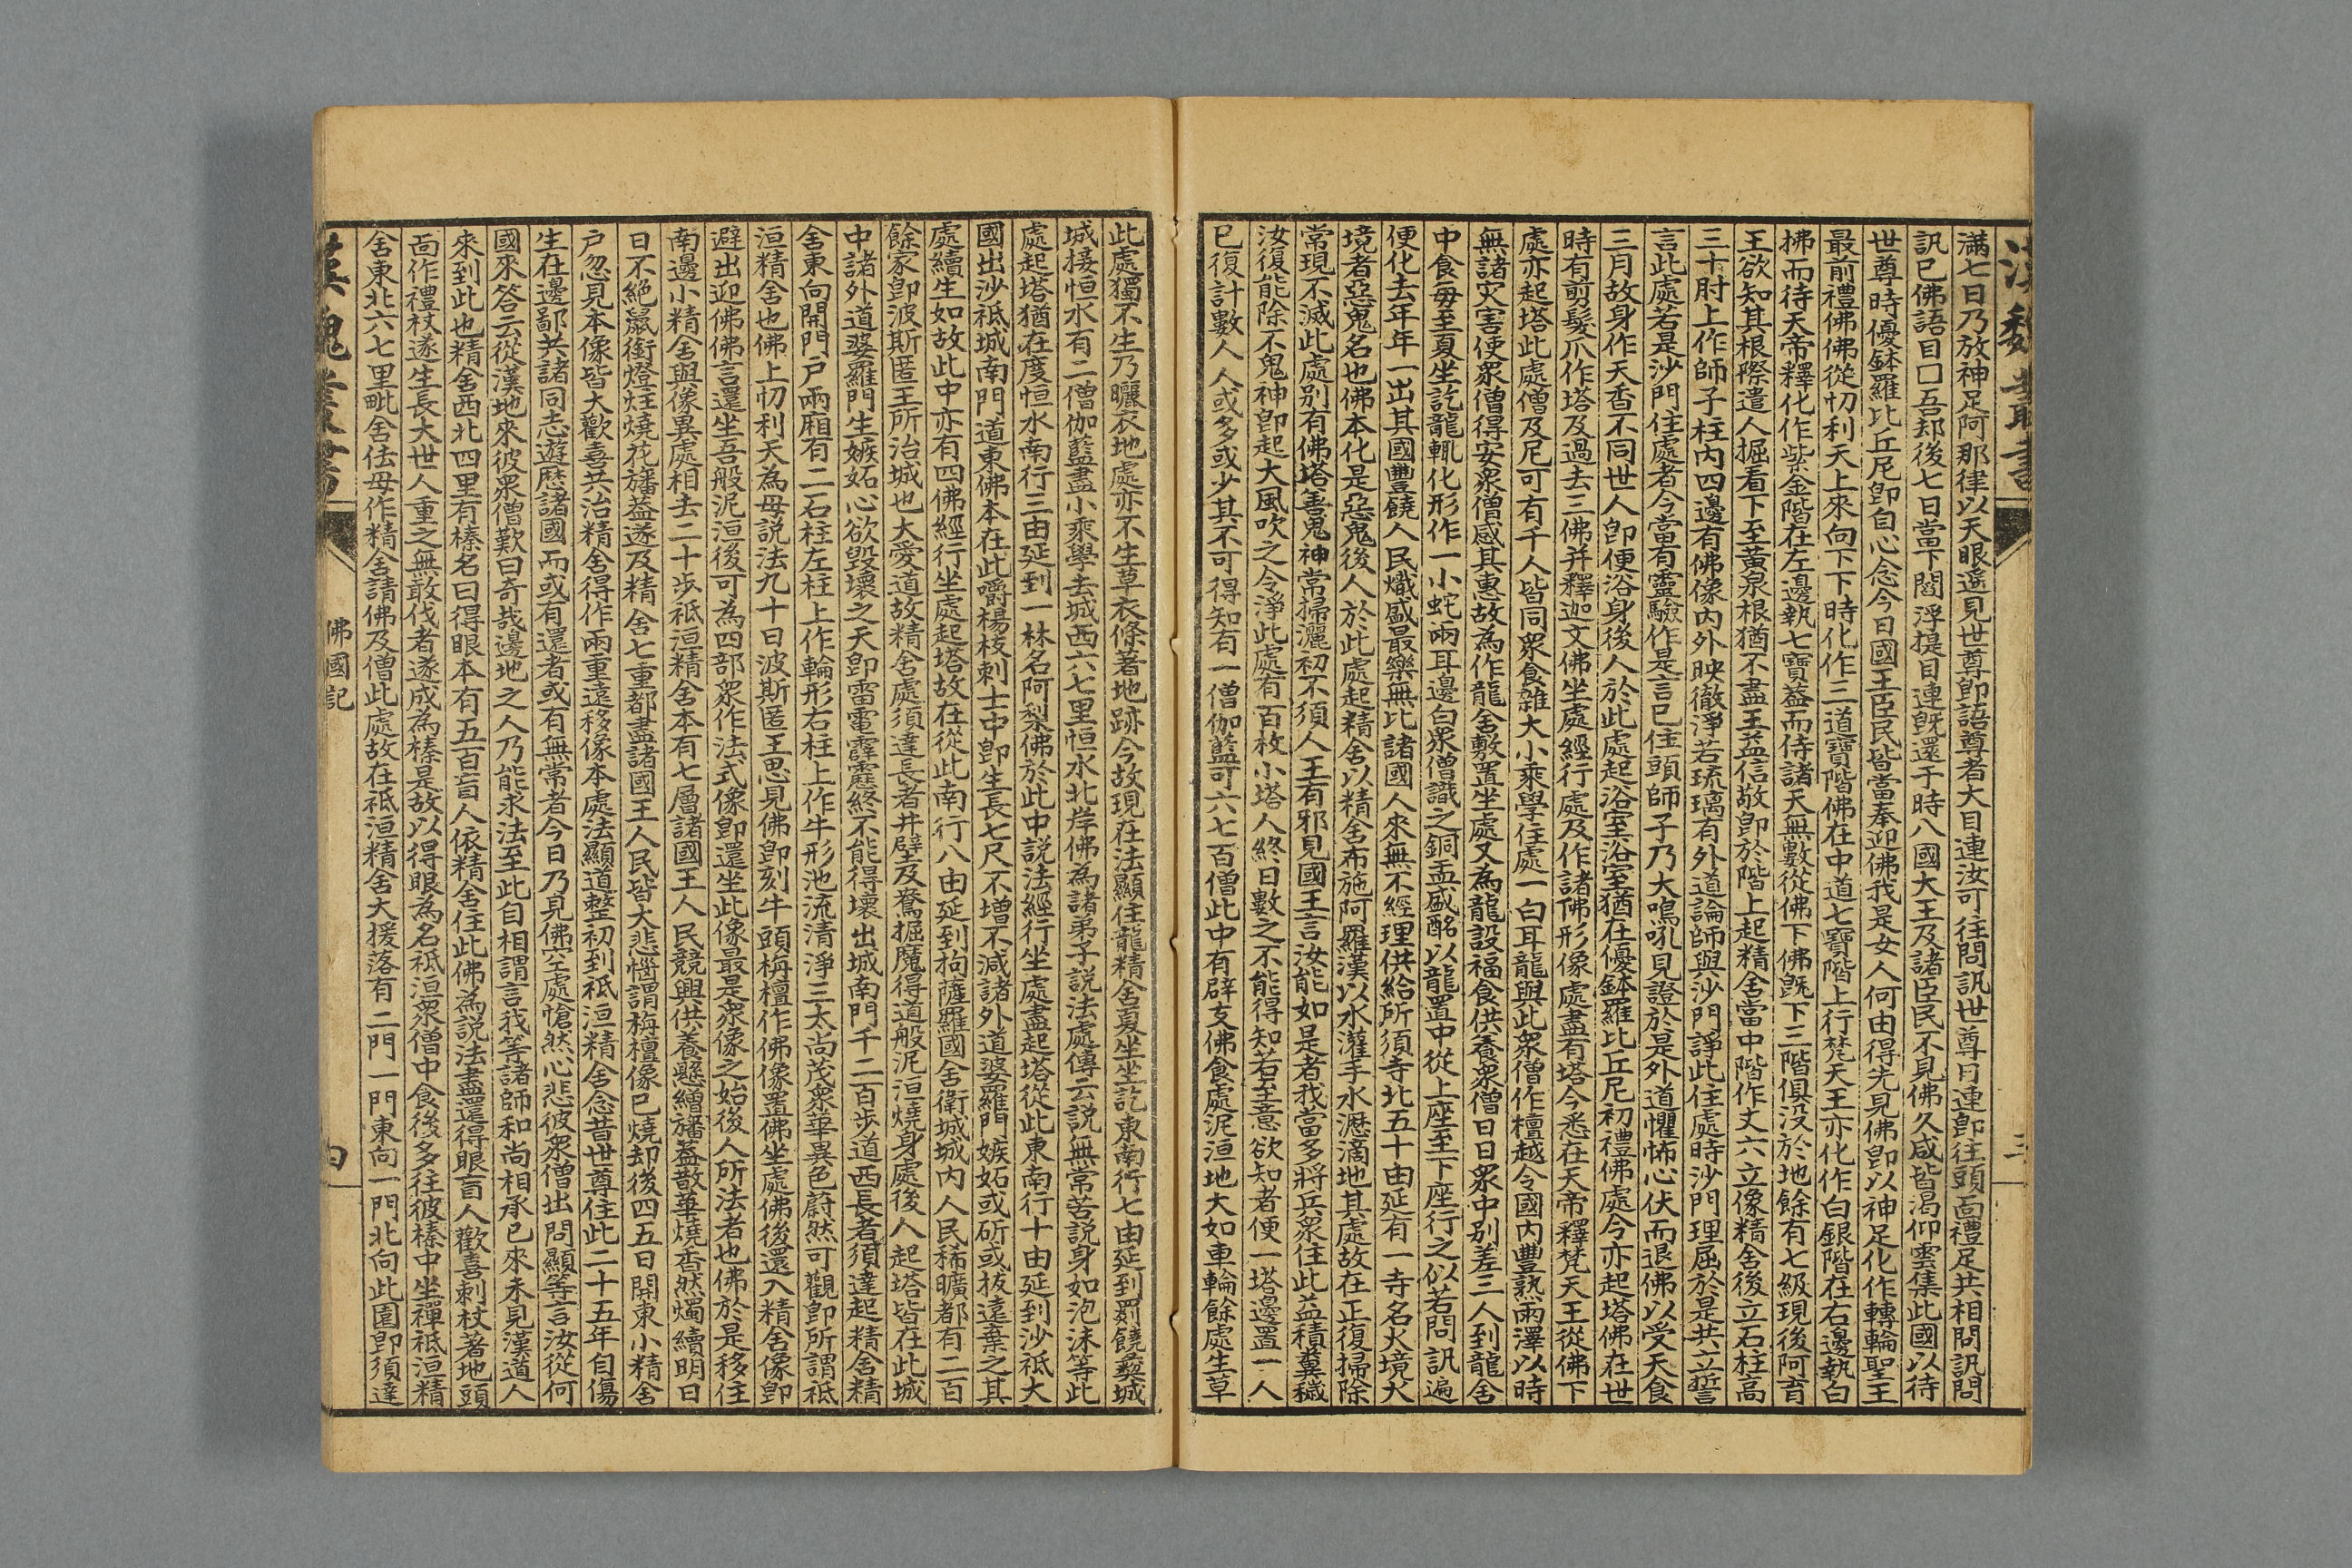 漢魏叢書
三
滿七日乃放神足阿那律以天眼遥見世尊卽語尊者大目連汝可往問訊世尊目連卽往頭面禮足共相問訊問
訊已佛語目口吾却後七日當下閻浮提目連旣還于時八國大王及諸臣民不見佛久咸皆渴仰雲集此國以待
世尊時優鉢羅比丘尼卽自心念今日國王臣民皆當奉迎佛我是女人何由得先見佛卽以神足化作轉輪聖王
最前禮佛佛從忉利天上來向下下時化作三道寶階佛在中道七寶階上行梵天王亦化作白銀階在右邊執白
拂而待天帝釋化作紫金階在左邊執七寶葢而侍諸天無數從佛下佛旣下三階俱没於地餘有七級現後阿育
王欲知其根際遣人掘看下至黄泉根猶不盡王益信敬卽於階上起精舍當中階作丈六立像精舍後立石柱高
三十肘上作師子柱内四邊有佛像内外映徹淨若琉璃有外道論師與沙門諍此住處時沙門理屈於是共立誓
言此處若是沙門住處者今當有靈驗作是言已住頭師子乃大鳴吼見證於是外道懼怖心伏而退佛以受天食
三月故身作天香不同世人卽便浴身後人於此處起浴室浴室猶在優鉢羅比丘尼初禮佛處今亦起塔佛在世
時有剪髮爪作塔及過去三佛并釋迦文佛坐處經行處及作諸佛形像處盡有塔今悉在天帝釋梵天王從佛下
處亦起塔此處僧及尼可有千人皆同眾食雜大小乘學住處一白耳龍與此眾僧作檀越令國内豐熟雨澤以時
無諸灾害使眾僧得安眾僧感其惠故為作龍舍敷置坐處又為龍設福食供養眾僧日日眾中别差三人到龍舍
中食每至夏坐訖龍輒化形作一小蛇兩耳邊白眾僧識之銅盂盛酪以龍置中從上座至下座行之似若問訊遍
便化去年年一出其國豐饒人民熾盛最樂無比諸國人來無不經理供給所須寺北五十由延有一寺名火境火
境者惡鬼名也佛本化是惡鬼後人於此處起精舍以精舍布施阿羅漢以水灌手水瀝滴地其處故在正復掃除
常現不滅此處别有佛塔善鬼神常掃灑初不須人王有邪見國王言汝能如是者我當多將兵眾住此益積糞穢
汝復能除不鬼神卽起大風吹之令淨此處有百枚小塔人終日數之不能得知若至意欲知者便一塔邊置一人
已復計數人人或多或少其不可得知有一僧伽藍可六七百僧此中有辟支佛食處泥洹地大如車輪餘處生草
此處獨不生乃曬衣地處亦不生草衣條著地跡今故現在法顯住龍精舍夏坐坐訖東南行七由延到罽饒夷城
城接恒水有二僧伽藍盡小乘學去城西六七里恒水北岸佛為諸弟子説法處傳云説無常苦説身如泡沫等此
處起塔猶在度恒水南行三由延到一林名阿梨佛於此中説法經行坐處盡起塔從此東南行十由延到沙祗大
國出沙祗城南門道東佛本在此嚼楊枝刺土中卽生長七尺不增不減諸外道婆羅門嫉妬或斫或拔遠棄之其
處續生如故此中亦有四佛經行坐處起塔故在從此南行八由延到拘薩羅國舍衛城城内人民稀曠都有二百
餘家卽波斯匿王所治城也大愛道故精舍處須達長者井壁及鴦掘魔得道般泥洹燒身處後人起塔皆在此城
中諸外道婆羅門生嫉妬心欲毀壞之天卽雷電霹靂終不能得壞出城南門千二百步道西長者須達起精舍精
舍東向開門户兩廂有二石柱左柱上作輪形右柱上作牛形池流清淨三太尚茂眾華異色蔚然可觀卽所謂祗
洹精舍也佛上忉利天為母説法九十日波斯匿王思見佛卽刻牛頭栴檀作佛像置佛坐處佛後還入精舍像卽
避出迎佛佛言還坐吾般泥洹後可為四部眾作法式像卽還坐此像最是眾像之始後人所法者也佛於是移住
南邊小精舍與像異處相去二十步祗洹精舍本有七層諸國王人民競興供養懸繒旛葢散華燒香然燭續明日
日不絶鼠銜燈炷燒花旛葢遂及精舍七重都盡諸國王人民皆大悲惱謂栴檀像已燒却後四五日開東小精舍
户忽見本像皆大歡喜共治精舍得作兩重遠移像本處法顯道整初到祗洹精舍念昔世尊住此二十五年自傷
生在邊鄙共諸同志遊歷諸國而或有還者或有無常者今日乃見佛空處愴然心悲彼眾僧出問顯等言汝從何
國來答云從漢地來彼眾僧歎曰奇哉邊地之人乃能求法至此自相謂言我等諸師和尚相承已來未見漢道人
來到此也精舍西北四里有榛名曰得眼本有五百盲人依精舍住此佛為説法盡還得眼盲人歡喜刺杖著地頭
面作禮杖遂生長大世人重之無敢伐者遂成為榛是故以得眼為名祗洹眾僧中食後多往彼榛中坐禪祗洹精
舍東北六七里毗舍佉母作精舍請佛及僧此處故在祗洹精舍大援落有二門一門東向一門北向此園卽須達
漢魏叢書
佛國記